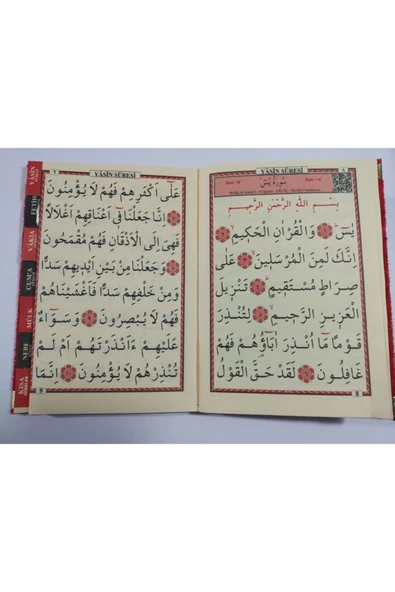 YÂSÎN SÛRESİ
سُورَةُ يٰسٓ
بِسْمِ اللّٰهِ الرَّحْمٰنِ الرَّحٖيمِ
يٰسٓ وَالْقُرْاٰنِ الْحَكٖيمِ
اِنَّكَ لَمِنَ الْمُرْسَلٖينَ عَلٰى
صِرَاطٍ مُسْتَقٖيمٍ تَنْزٖيلَ
الْعَزٖيزِ الرَّحٖيمِ لِتُنْذِرَ
قَوْمًا مَٓا اُنْذِرَ اٰبَٓاؤُ۬هُمْ فَهُمْ
غَافِلُونَ لَقَدْ حَقَّ الْقَوْلُ
YÂSÎN SÛRESİ
عَلٰٓى اَكْثَرِهِمْ فَهُمْ لَا يُؤْمِنُونَ
اِنَّا جَعَلْنَا فٖٓى اَعْنَاقِهِمْ اَغْلَالًا
فَهِىَ اِلَى الْاَذْقَانِ فَهُمْ مُقْمَحُونَ
وَجَعَلْنَا مِنْ بَيْنِ اَيْدٖيهِمْ سَدًّا
وَمِنْ خَلْفِهِمْ سَدًّا فَاَغْشَيْنَاهُمْ
فَهُمْ لَا يُبْصِرُونَ وَسَوَٓاءٌ
عَلَيْهِمْ ءَاَنْذَرْتَهُمْ اَمْ لَمْ
تُنْذِرْهُمْ لَا يُؤْمِنُونَ اِنَّمَا
YÂSÎN
FETİH
VÂKIA
CUM'A
MÜLK
NEBE
KISA